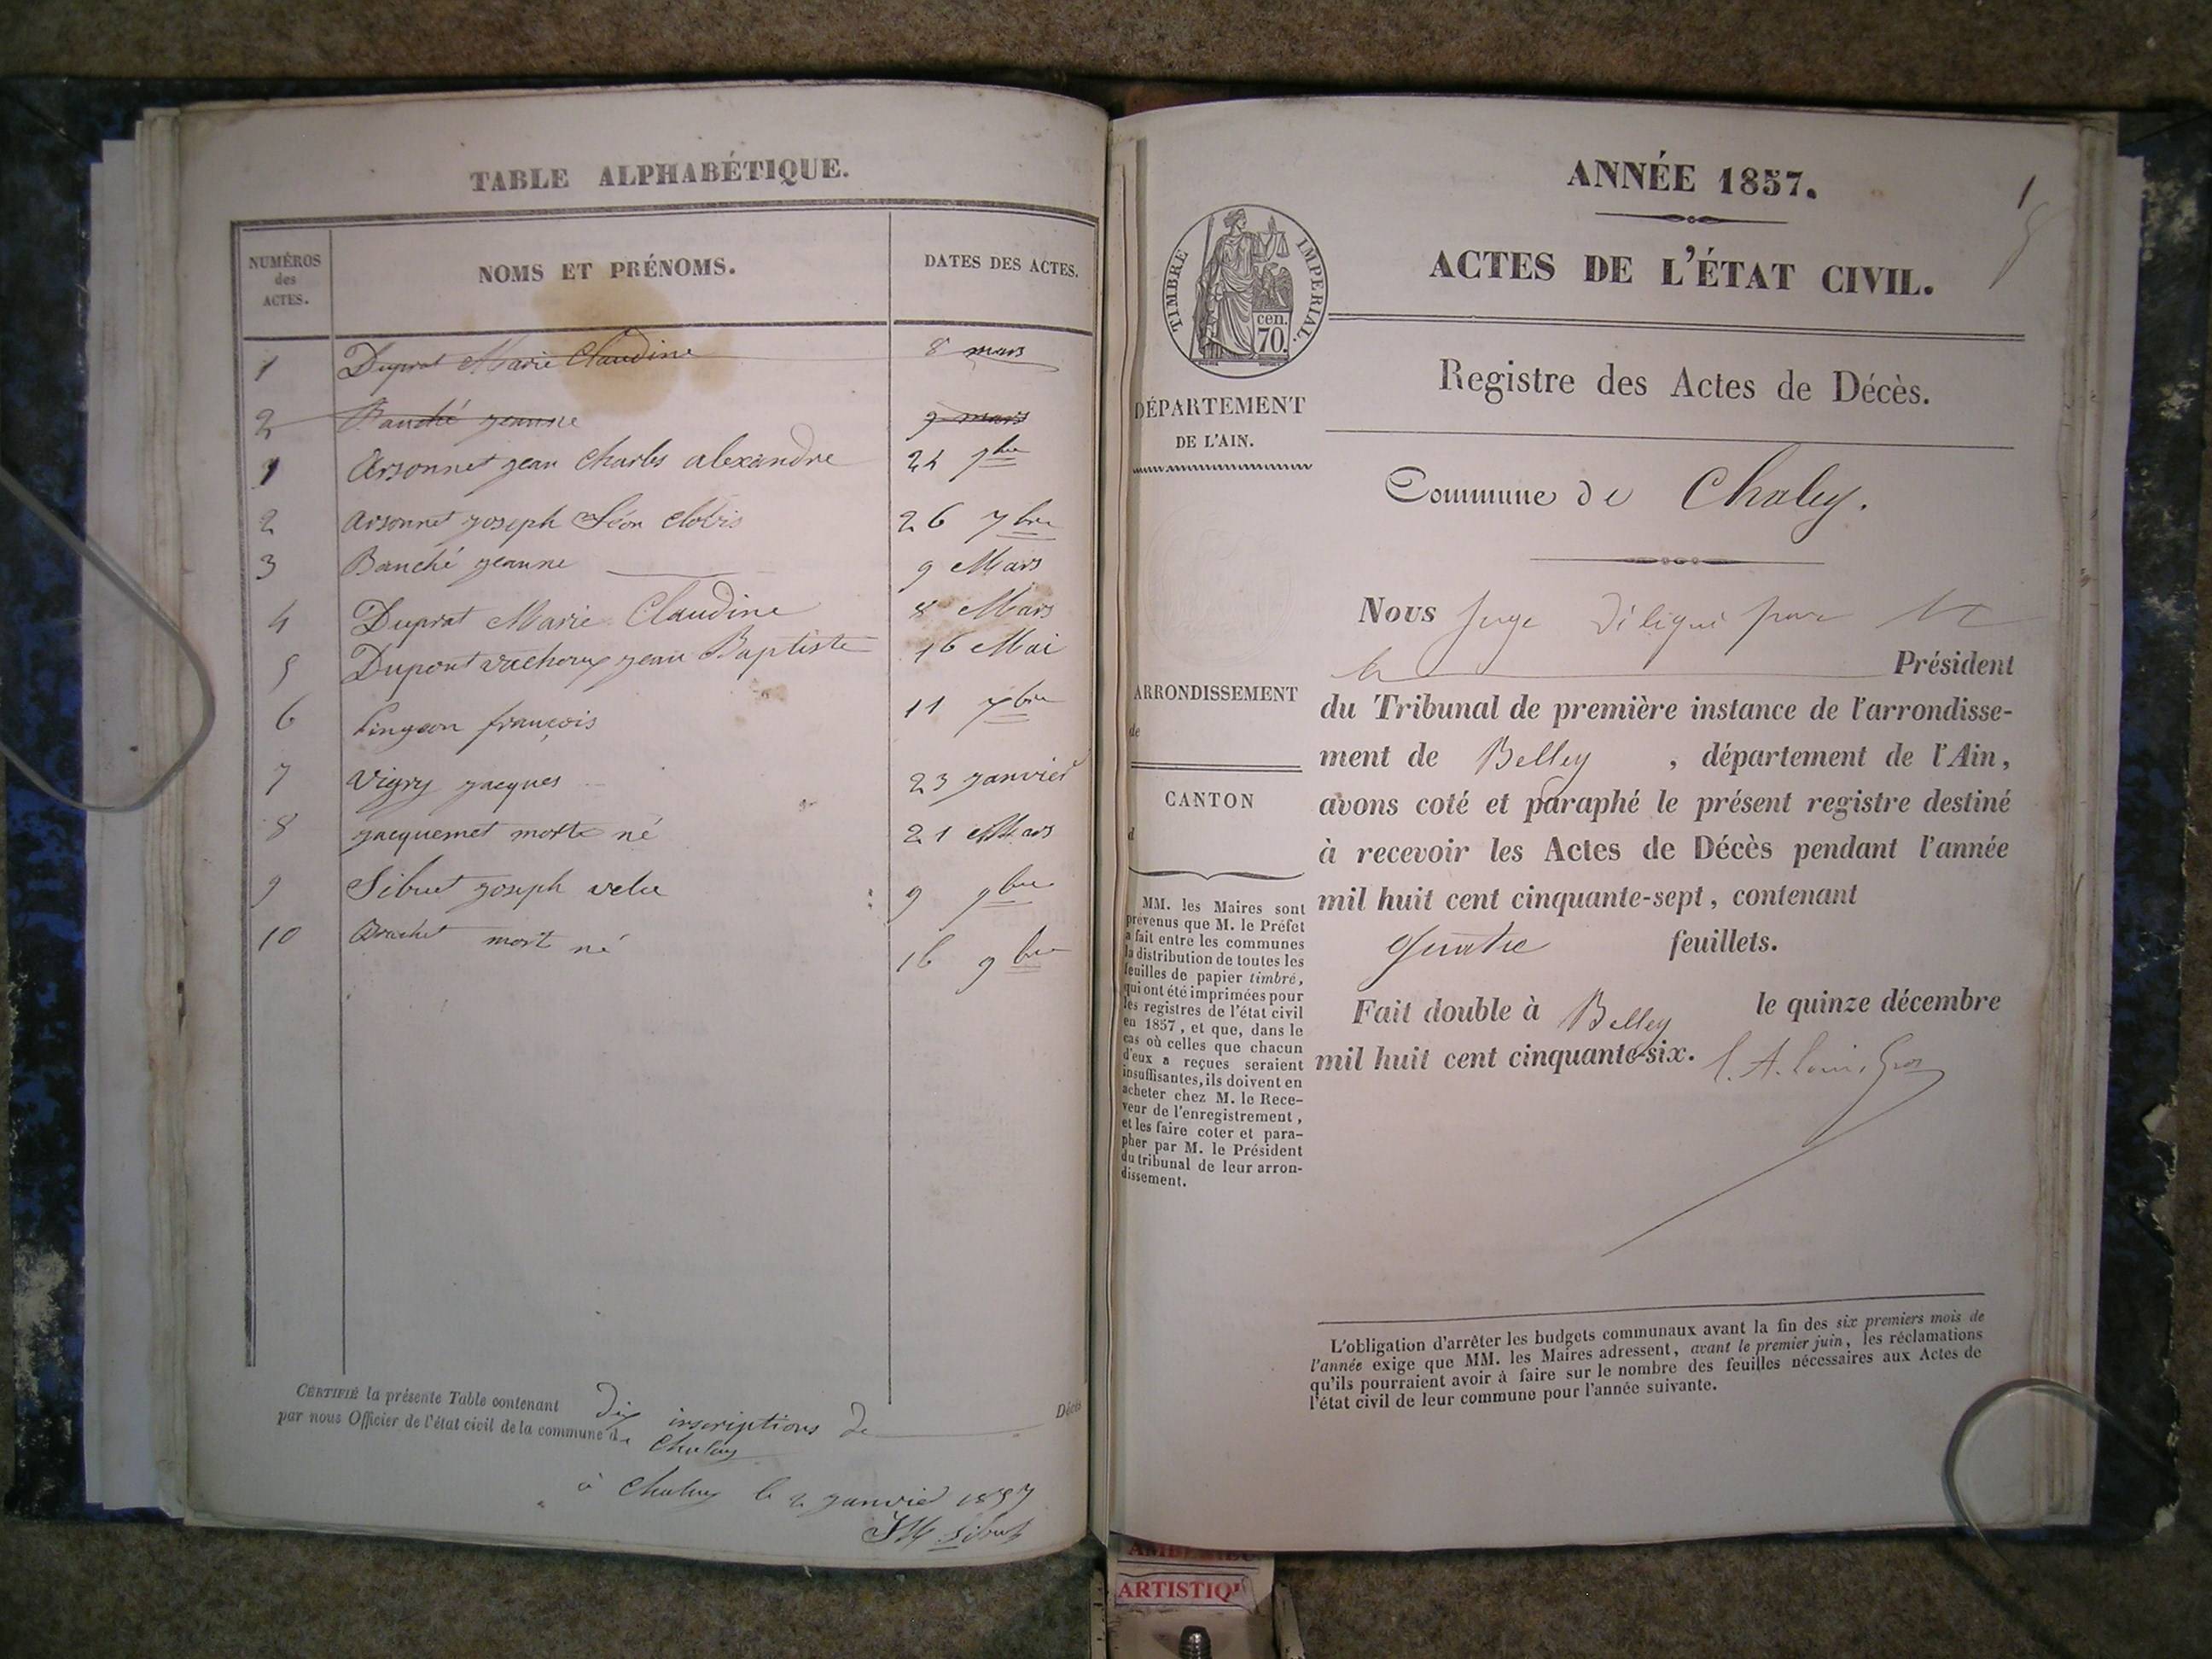 TABLE ALPHABÉTIQUE.
NUMÉROS des ACTES. NOMS ET PRÉNOMS. DATES DES ACTES.
1 Duprat Marie Claudine 8 mars
2 Banché jeanne 9 mars
1 Arsonnet jean Charles alexandre 24 7bre
2 arsonnet joseph Léon Clovis 26 7bre
3 Banché jeanne 9 Mars
4 Duprat Marie Claudine 8 Mars
5 Dupont vachoux jean Baptiste 16 Mai
6 Lingeon françois 11 7bre
7 Vigry jacques 23 janvier
8 jacquemet morte né 21 Mars
9 Sibuet joseph 9 9bre
10 mort né 16 9bre
CERTIFIÉ la présente Table contenant dix inscriptions de Décès
par nous Officier de l'état civil de la commune de Chaley
à Chaley le 2 janvier 1857
Sibuet
ANNÉE 1857.
1
ACTES DE L'ÉTAT CIVIL.
TIMBRE IMPERIAL.
cen.
70.
Registre des Actes de Décès.
DÉPARTEMENT
DE L'AIN.
Commune de Chaley.
ARRONDISSEMENT
de
CANTON
d
MM. les Maires sont
prévenus que M. le Préfet
a fait entre les communes
la distribution de toutes les
feuilles de papier timbré,
qui ont été imprimées pour
les registres de l'état civil
en 1857, et que, dans le
cas où celles que chacun
d'eux a reçues seraient
insuffisantes, ils doivent en
acheter chez M. le Rece-
veur de l'enregistrement,
et les faire coter et para-
pher par M. le Président
du tribunal de leur arron-
dissement.
Nous juge délégué par Mr
le Président
du Tribunal de première instance de l'arrondisse-
ment de Belley , département de l'Ain,
avons coté et paraphé le présent registre destiné
à recevoir les Actes de Décès pendant l'année
mil huit cent cinquante-sept, contenant
quatre feuillets.
Fait double à Belley le quinze décembre
mil huit cent cinquante-six.
L'obligation d'arrêter les budgets communaux avant la fin des six premiers mois de
l'année exige que MM. les Maires adressent, avant le premier juin, les réclamations
qu'ils pourraient avoir à faire sur le nombre des feuilles nécessaires aux Actes de
l'état civil de leur commune pour l'année suivante.
ARTISTIQ